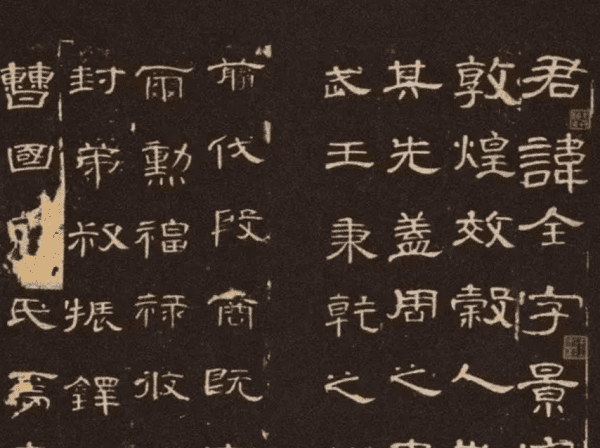 君諱全字景
敦煌效穀人
其先蓋周之
武王秉乾之
翦伐殷商既
爾勳福祿攸
封弟叔振鐸
曹國氏焉